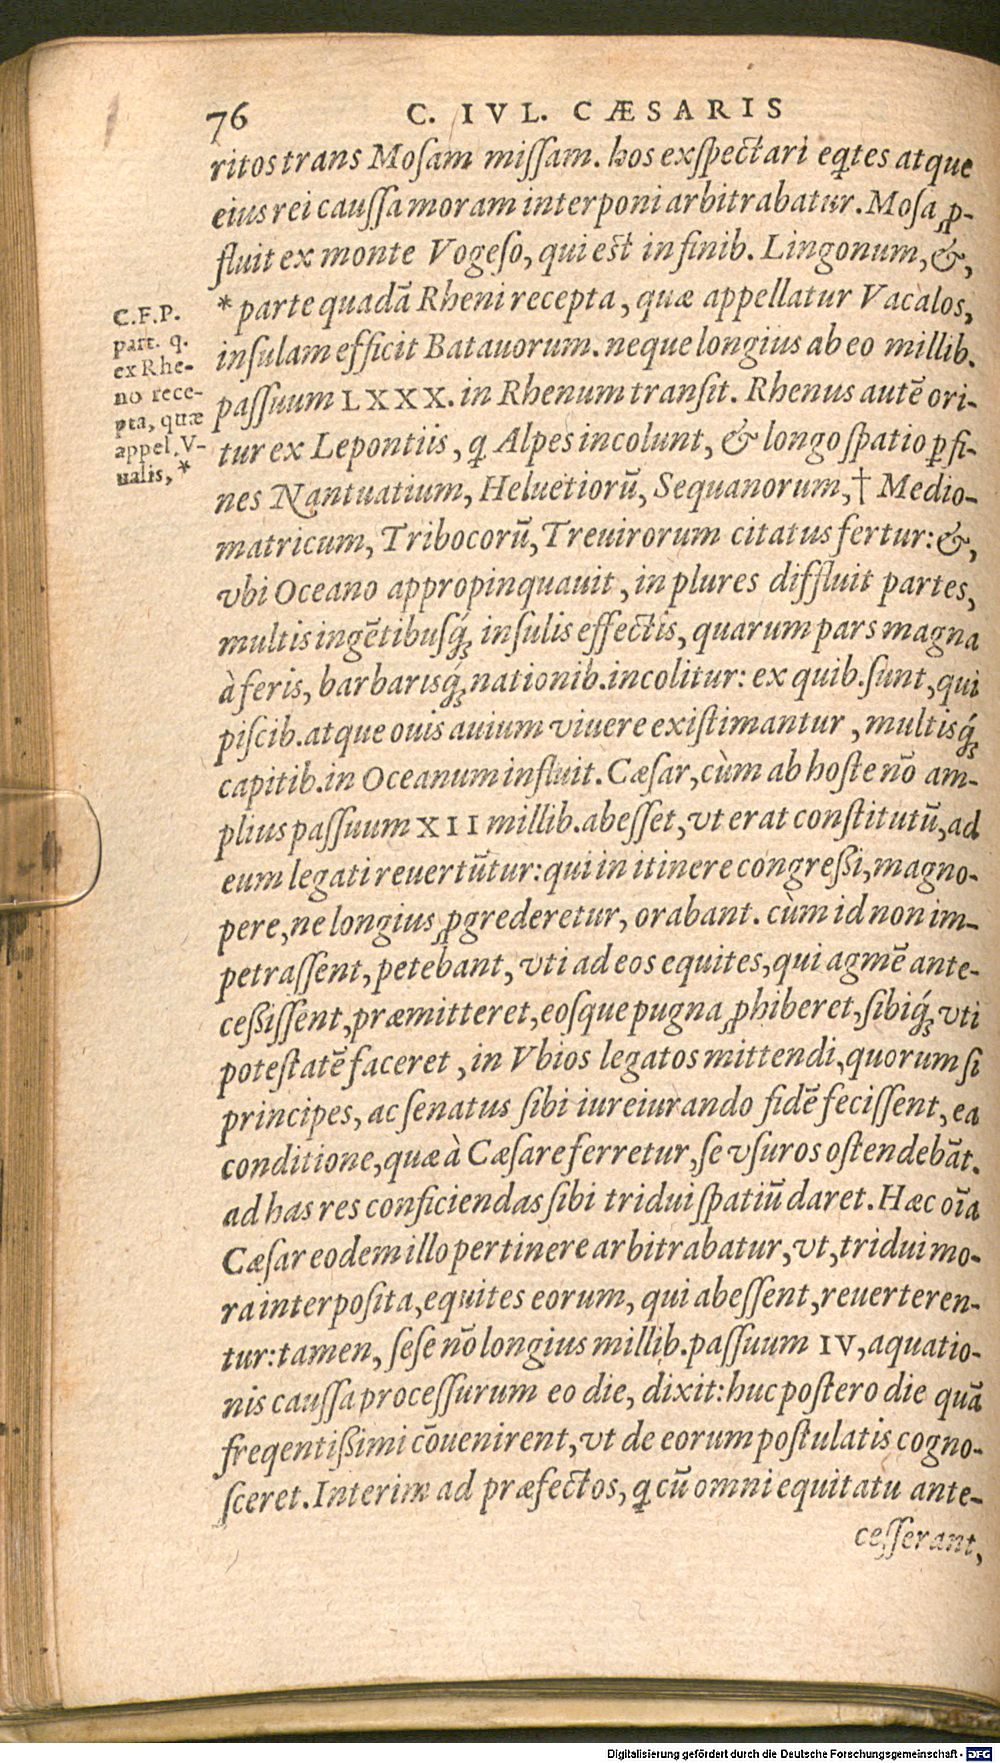 76 C. IVL. CÆSARIS
ritos trans Mosam missam. hos exspectari eq̃tes atque
eius rei caussa moram interponi arbitrabatur. Mosa ꝓ-
fluit ex monte Vogeso, qui est in finib. Lingonum, &,
* parte quadā Rheni recepta, quæ appellatur Vacalos,
insulam efficit Batauorum. neque longius ab eo millib.
passuum LXXX. in Rhenum transit. Rhenus autē ori-
tur ex Lepontiis, q̃ Alpes incolunt, & longo spatio ꝑ fi-
nes Nantuatium, Heluetiorū, Sequanorum, † Medio-
matricum, Tribocorū, Treuirorum citatus fertur: &,
vbi Oceano appropinquauit, in plures diffluit partes,
multis ingētibusq́; insulis effectis, quarum pars magna
à feris, barbarisq́; nationib. incolitur: ex quib. sunt, qui
piscib. atque ouis auium viuere existimantur, multisq́;
capitib. in Oceanum influit. Cæsar, cùm ab hoste nō am-
plius passuum XII millib. abesset, vt erat constitutū, ad
eum legati reuertūtur: qui in itinere congreßi, magno-
pere, ne longius ꝓgrederetur, orabant. cùm id non im-
petrassent, petebant, vti ad eos equites, qui agmē ante-
ceßissent, præmitteret, eosque pugna ꝓhiberet, sibiq́; vti
potestatē faceret, in Vbios legatos mittendi, quorum si
principes, ac senatus sibi iureiurando fidē fecissent, ea
conditione, quæ à Cæsare ferretur, se vsuros ostendebāt.
ad has res conficiendas sibi tridui spatiū daret. Hæc oīa
Cæsar eodem illo pertinere arbitrabatur, vt, tridui mo-
ra interposita, equites eorum, qui abessent, reuerteren-
tur: tamen, sese nō longius millib. passuum IV, aquatio-
nis caussa processurum eo die, dixit: huc postero die quā
freqentißimi cōuenirent, vt de eorum postulatis cogno-
sceret. Interim ad præfectos, q̃ cū omni equitatu ante-
cesserant,
C.F.P.
part. q.
ex Rhe-
no rece-
pta, quæ
appel. V-
ualis, *
Digitalisierung gefördert durch die Deutsche Forschungsgemeinschaft - DFG